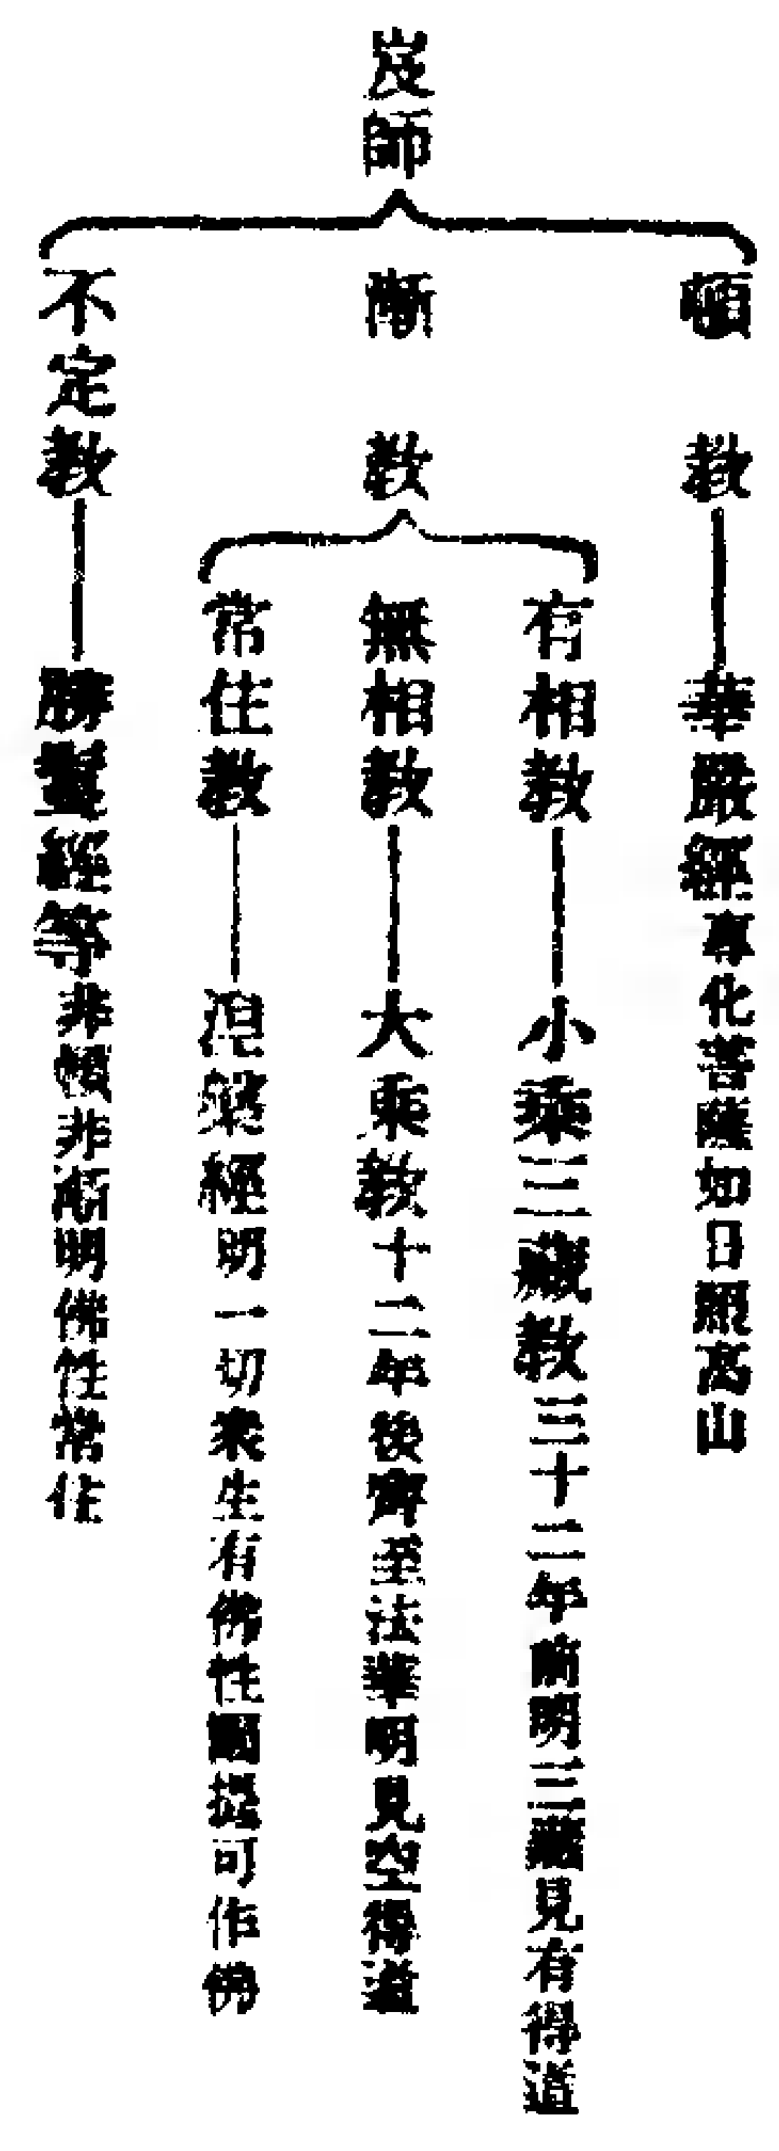 岌師
頓教
華嚴經專化菩薩如日照高山
漸教
有相教
小乘三藏教三十二年前明三藏見有得道
無相教
大乘教十二年後齊至法華明見空得道
常住教
涅槃經明一切衆生有佛性闡提可作佛
不定教
勝鬘經等非頓非漸明佛性常住